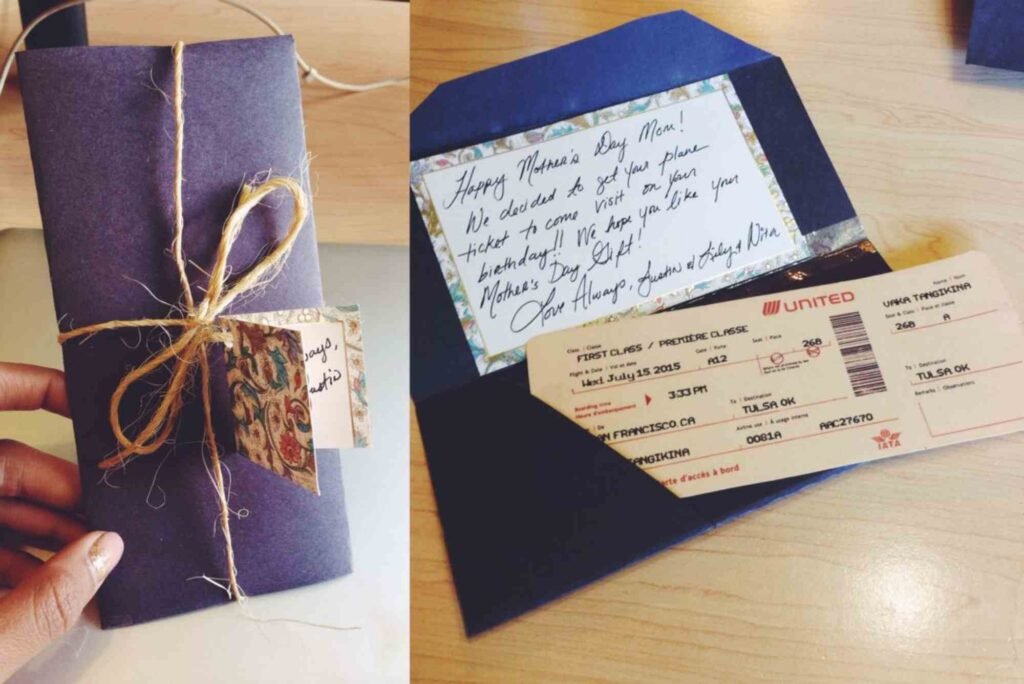 ways,
ustin
Happy Mother's Day Mom!
We decided to get your plane
ticket to come visit on your
birthday!! We hope you like your
Mother's Day Gift!
Love Always, Austin & Lily & Nita
UNITED
Class / Classe
FIRST CLASS / PREMIÈRE CLASSE
Flight & Date / Vol et date
Gate / Porte
Seat / Place
Wed July 15 2015
A12
26B
Boarding time
Heure d'embarquement
3:33 PM
De
To / Destination
AN FRANCISCO.CA
TULSA OK
Airline use / A usage interne
TANGIKINA
0081A
AAC27670
arte d'accès à bord
IATA
Name / Nom
VAKA TANGIKINA
Seat & Class / Place et classe
26B A
To / Destination
TULSA OK
Remarks / Observations